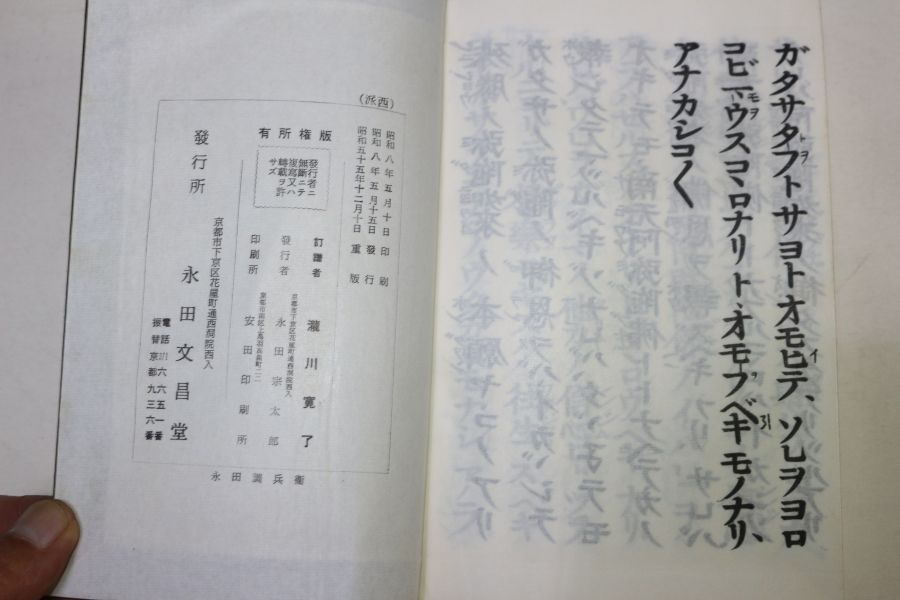 ガタサタフトサヨトオモヒテ、ソレヲヨロ
コビマウスコヽロナリトヽオモフベキモノナリ、
アナカシコ〱
(西派)
昭和八年五月十日印刷
昭和八年五月十五日發行
昭和五十五年十二月十日重版
版権所有
發行者ニ
無斷ニテ
複寫又ハ
轉載ヲ許
サズ
訂譜者 瀧川寛了
京都市下京区花屋町通西洞院西入
發行者 永田宗太郎
印刷所 安田印刷所
發行所
京都市下京区花屋町通西洞院西入
永田文昌堂
振替京都九三六番
永田調兵衞